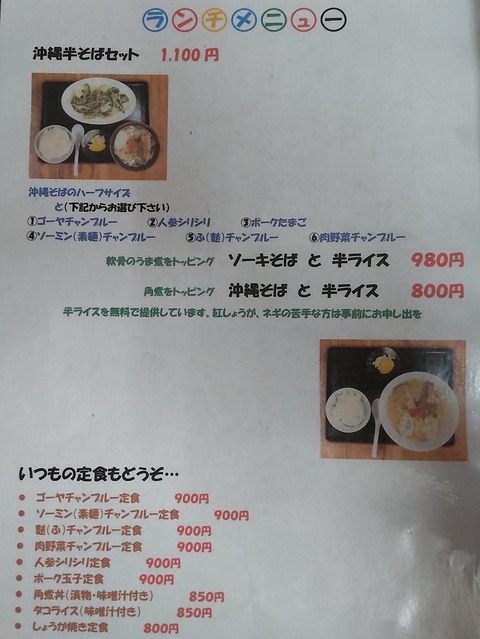 ランチメニュー
沖縄半そばセット 1,100円
沖縄そばのハーフサイズ
と(下記からお選び下さい)
①ゴーヤチャンプルー ②人参シリシリ ③ポークたまご
④ソーミン(素麺)チャンプルー ⑤ふ(麩)チャンプルー ⑥肉野菜チャンプルー
軟骨のうま煮をトッピング ソーキそば と 半ライス 980円
角煮をトッピング 沖縄そば と 半ライス 800円
半ライスを無料で提供しています。紅しょうが、ネギの苦手な方は事前にお申し出を
いつもの定食もどうぞ…
● ゴーヤチャンプルー定食 900円
● ソーミン(素麺)チャンプルー定食 900円
● 麩(ふ)チャンプルー定食 900円
● 肉野菜チャンプルー定食 900円
● 人参シリシリ定食 900円
● ポーク玉子定食 900円
● 角煮丼(漬物・味噌汁付き) 850円
● タコライス(味噌汁付き) 850円
● しょうが焼き定食 800円